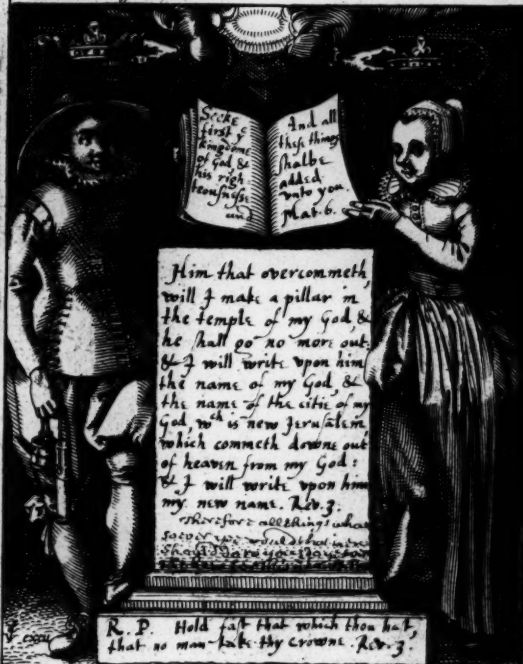 Seeke
first ye
kingdome
of God, &
his righ
teousnesse
and
And all
these things
shalbe
added
unto you.
Mat. 6.
Him that overcommeth,
will I make a pillar in
the temple of my God, &
he shall go no more out.
& I will write vpon him
the name of my God, &
the name of the citie of my
God, wch is new Jerusalem,
which commeth downe out
of heaven from my God:
& I will write vpon him
my new name. Rev. 3.
Therefore all things what
soever ye would that men
should do to you
R. P. Hold fast that which thou hast,
that no man take thy crowne. Rev. 3.